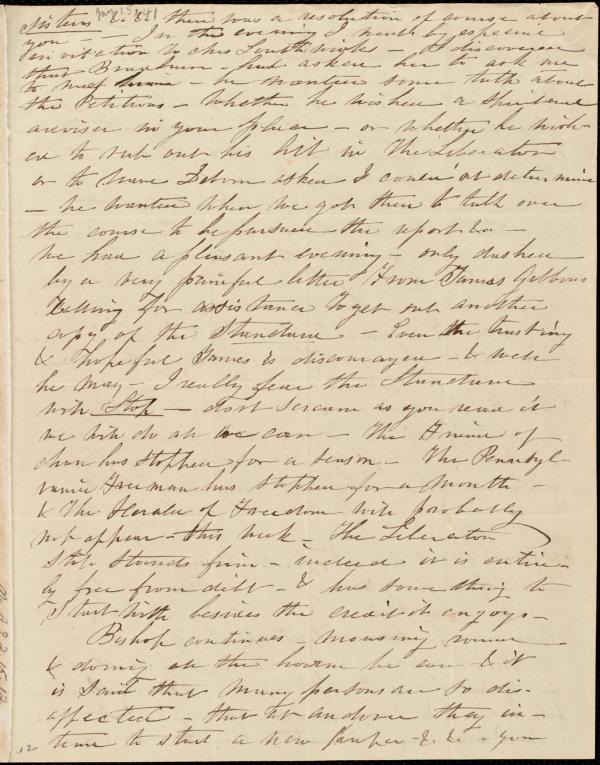 Jany 15 1841
Sisters &c. there was a resolution of course about
you — In the evening I went by especial
invitation to Chs Southwicks — I discovered
that Bradburn had asked her to ask me
to meet him — he wanted some talk about
the Petitions — Whether he wished a Spiritual
adviser in your place — or whether he wish-
ed to rub out his hit in the Liberator
or to have Deborn asked I could'nt determine
— he wanted when we got there to talk over
the course to be pursued the report &c —
we had a pleasant evening — only dashed
by a very painful letter from James Gibbons
asking for assistance to get out another
copy of the Standard — Even the trusting
& hopeful James is discouraged — & well
he may — I really fear the Standard
will Stop — dont scream as you read it
we will do all we can — The Friend of
Man has stopped for a season — The Pennsyl-
vania Freeman has stopped for a month —
& the Herald of Freedom will probably
not appear this week — The Liberator
still stands firm — indeed it is entire-
ly free from debt — & has something to
start with besides the credit it enjoys —
Bishop continues — mousing round
& doing all the harm he can — & it
is said that many persons are so dis-
affected — that at Andover they in-
tend to start a new paper &c. &c — you
12